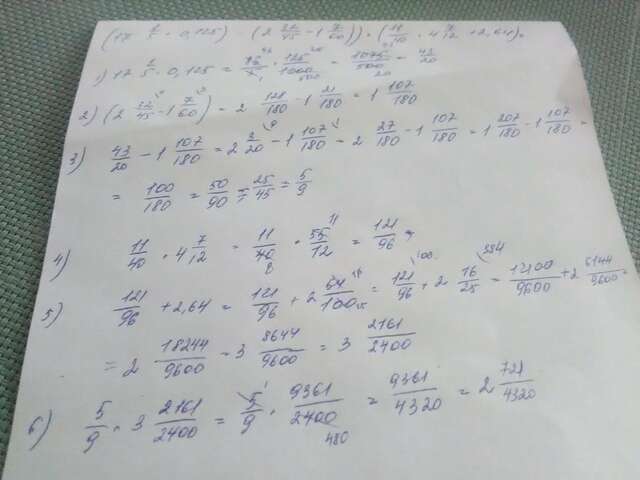 (17 1/5 · 0,125) - (2 32/45 - 1 7/60)) · (11/40 · 4 7/12 + 2,64) =
1) 17 1/5 · 0,125 = 86/5 · 125/1000 = 1075/500 = 43/20
2) (2 32/45 - 1 7/60) = 2 128/180 - 1 21/180 = 1 107/180
3) 43/20 - 1 107/180 = 2 3/20 - 1 107/180 = 2 27/180 - 1 107/180 = 1 207/180 - 1 107/180 =
= 100/180 = 50/90 = 25/45 = 5/9
4) 11/40 · 4 7/12 = 11/40 · 55/12 = 121/96
5) 121/96 + 2,64 = 121/96 + 2 64/100 = 121/96 + 2 16/25 = 12100/9600 + 2 6144/9600 =
= 2 18244/9600 = 3 8644/9600 = 3 2161/2400
6) 5/9 · 3 2161/2400 = 5/9 · 9361/2400 = 9361/4320 = 2 721/4320